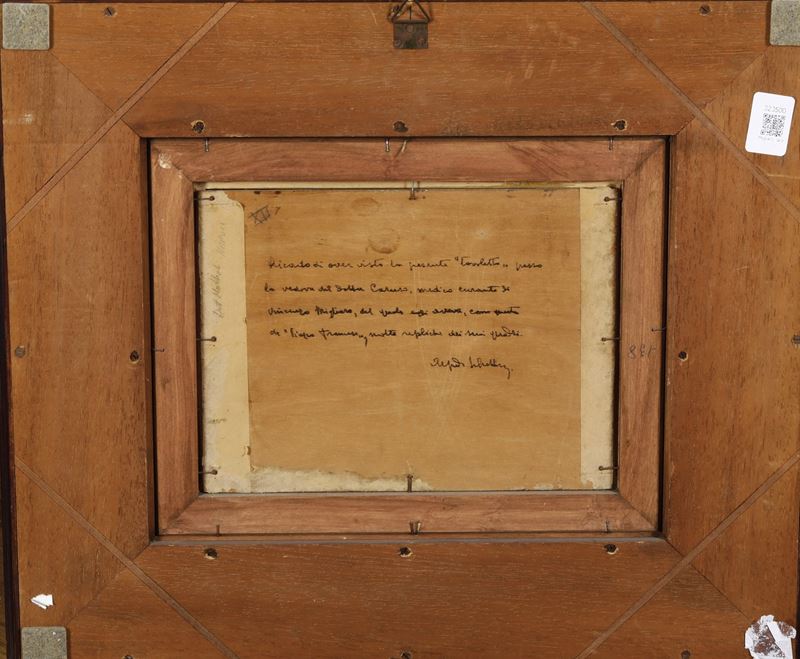 XIII
Ricordo di aver visto la presente "tavoletta" presso
la vedova del Dottor Caruso, medico curante di
Vincenzo Migliaro, del quale egli aveva, come questa
di "Vico Francese", molte repliche dei suoi quadri.
Alfredo Schettini.
138